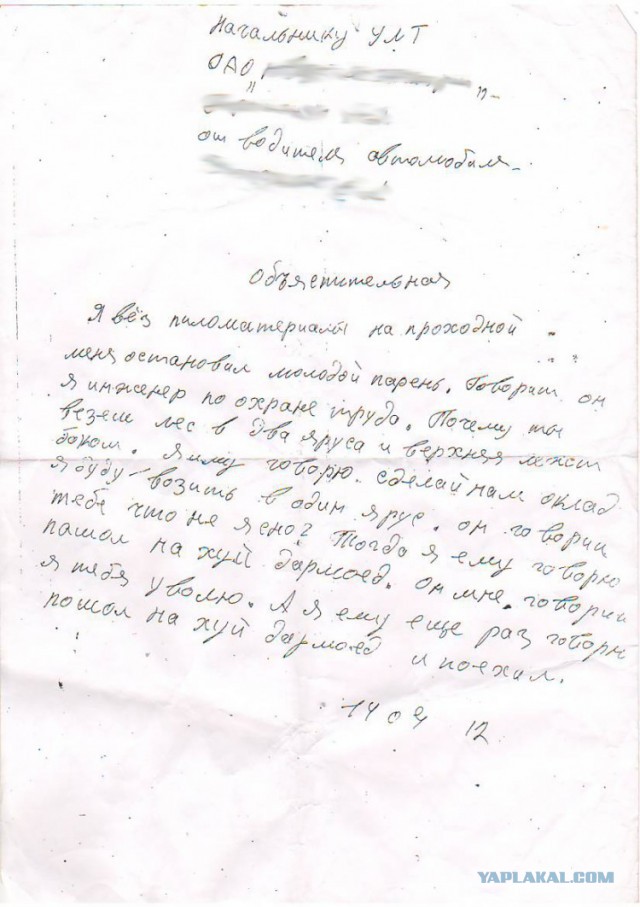 Начальнику УЛТ
ОАО "
"-
от водителя автомобиля
Объястительная
Я вёз пиломатериалы на проходной
меня остановил молодой парень. Говорит он
я инженер по охране труда. Почему ты
везеш лес в два яруса и верхняя лежит
боком. Я иму говорю. сделай нам оклад
я буду возить в один ярус. он говорит
тебе что не ясно? Тогда я ему говорю
пашол на хуй дармоед. он мне. говорит
я тебя уволю. А я ему еще раз говорю
пошол на хуй дармоед и поехал.
14 04 12
YAPLAKAL.COM